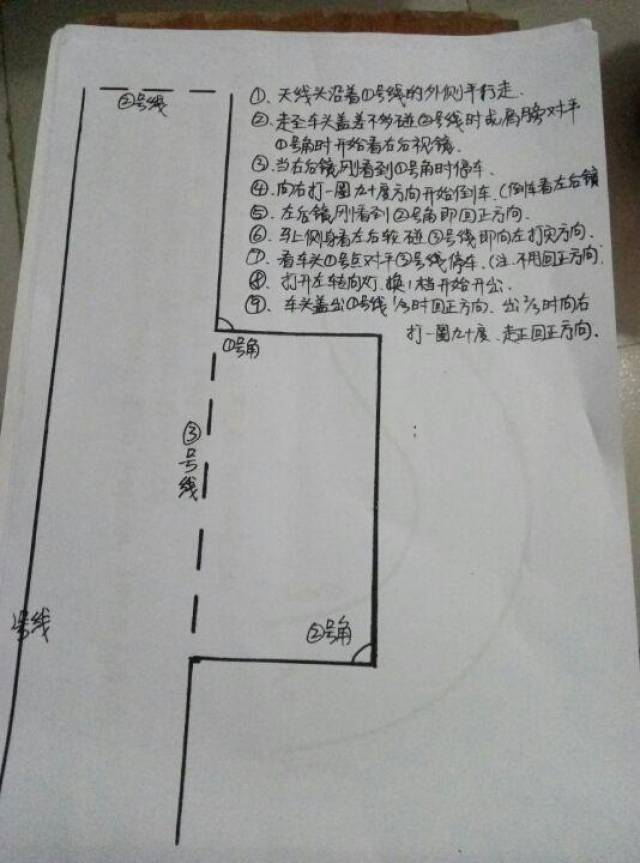 ②号线
①、天线头沿着①号线的外侧平行走.
②、走至车头盖差不多碰②号线时或肩膀对平
①号角时开始看右后视镜.
③、当右后镜刚看到①号角时停车.
④、向右打一圈九十度方向开始倒车.(倒车看左后镜
⑤、左后镜刚看到②号角即回正方向.
⑥、马上侧身看左后轮碰③号线即向左打死方向.
⑦、看车头①号点对平③号线停车.(注.不用回正方向.
⑧、打开左转向灯.换1档开始开出.
⑨、车头盖出①号线1/3时回正方向、出2/3时向右
打一圈九十度、走正回正方向.
①号角
③号线
号线
②号角